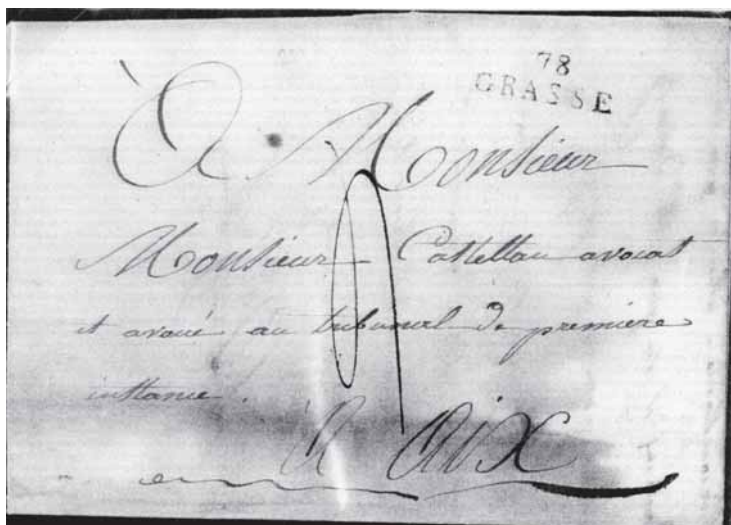 78
GRASSE
À Monsieur
Monsieur Castellan avocat
et avoué au tribunal de premiere
instance.
à Aix